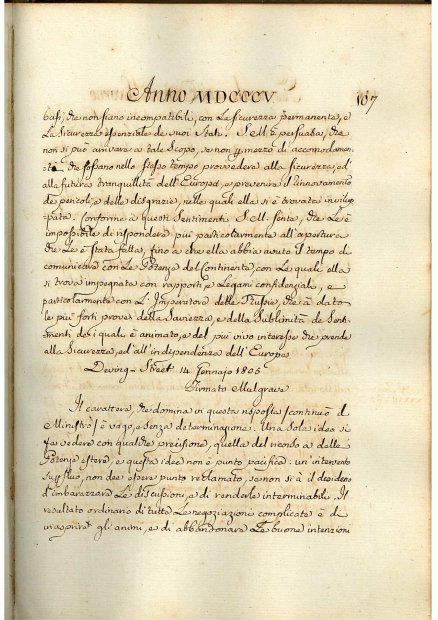 Anno MDCCCV
167
basi, che non siano incompatibili, con La sicurezza permanente, e
La sicurezza essenziale de suoi Stati. S. M. è persuasa, che
non si può arrivare a tale scopo, se non p mezzo di accomodamen
ti che possano nello stesso tempo provvedere alla sicurezza, ed
alla futura tranquillità dell'Europa, e prevenire il rinnovamento
de pericoli, e delle disgrazie, nelle quali ella si è trovata invilup
pata. Conforme a questi Sentimenti S. M. sente, che Le è
impossibile di rispondere più particolarmente all'apertura
che Le è stata fatta, fino a che ella abbia avuto il tempo di
comunicare con Le Potenze del Continente, con Le quali ella
si trova impegnata con rapporti, e Legami confidenziali, e
particolarmente con L'Imperatore delle Russie, che à dato
le più forti prove della Saviezza, e della Sublimità de Senti-
menti de i quali è animato, e del più vivo interesse che prende
alla Sicurezza, ed all'indipendenza dell'Europa
Dovving-Street 14. Gennajo 1805
Firmato Mulgrave
Il carattere, che domina in questa risposta (continuò il
Ministro) è vago, e senza determinazione. Una sola idea si
fa vedere con qualche precisione, quella del ricorso a delle
Potenze estere, e questa idea non è punto pacifica: un'intervento
superfluo, non dee essere punto reclamato, se non si à il desiderio
d'imbarazzare Le discussioni, e di renderle interminabili. Il
resultato ordinario di tutte Le negoziazioni complicate è di
inasprire gli animi, e di abbandonare Le buone intenzioni